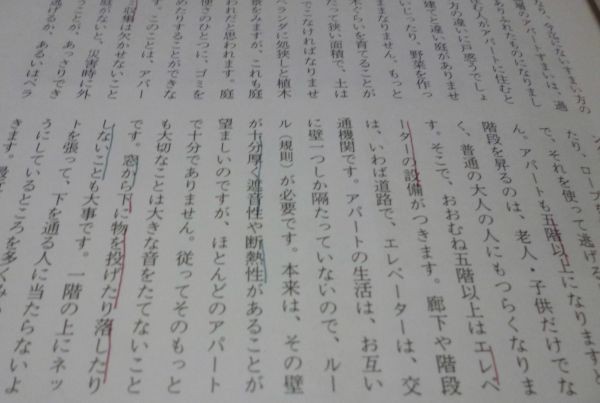 たり、ロープ
で、それを使って逃げる
ん。アパートも五階以上になりますと
階段を昇るのは、老人・子供だけでな
く、普通の大人の人にもつらくなりま
す。そこで、おおむね五階以上はエレベ
ーターの設備がつきます。廊下や階段
は、いわば道路で、エレベーターは、交
通機関です。アパートの生活は、お互い
に壁一つしか隔たっていないので、ルー
ル（規則）が必要です。本来は、その壁
が十分厚く遮音性や断熱性があることが
望ましいのですが、ほとんどのアパート
で十分でありません。従ってそのもっと
も大切なことは大きな音をたてないこと
です。窓から下に物を投げたり落したり
しないことも大事です。一階の上にネッ
トを張って、下を通る人に当たらないよ
うにしているところを多くみ
きます。
すまい方の
アパートずまいは、過
ありふれたものになりまし
む人がアパートに住むと
方の違いに戸惑うでしょ
建てと違い庭がありませ
いじったり、野菜を作っ
きません。もっと
木ぐらいを育てることが
たって狭い面積で、土は
でこなければなりませ
ベランダに処狭しと植木
景をみますが、これも庭
われだと思われます。庭
便さのひとつに、ゴミを
めたりすることができな
す。このことは、アパー
収集は欠かせないこと
庭がないと、災害時に外
うことが、あっさりでき
逃れるか、あるいはベラ